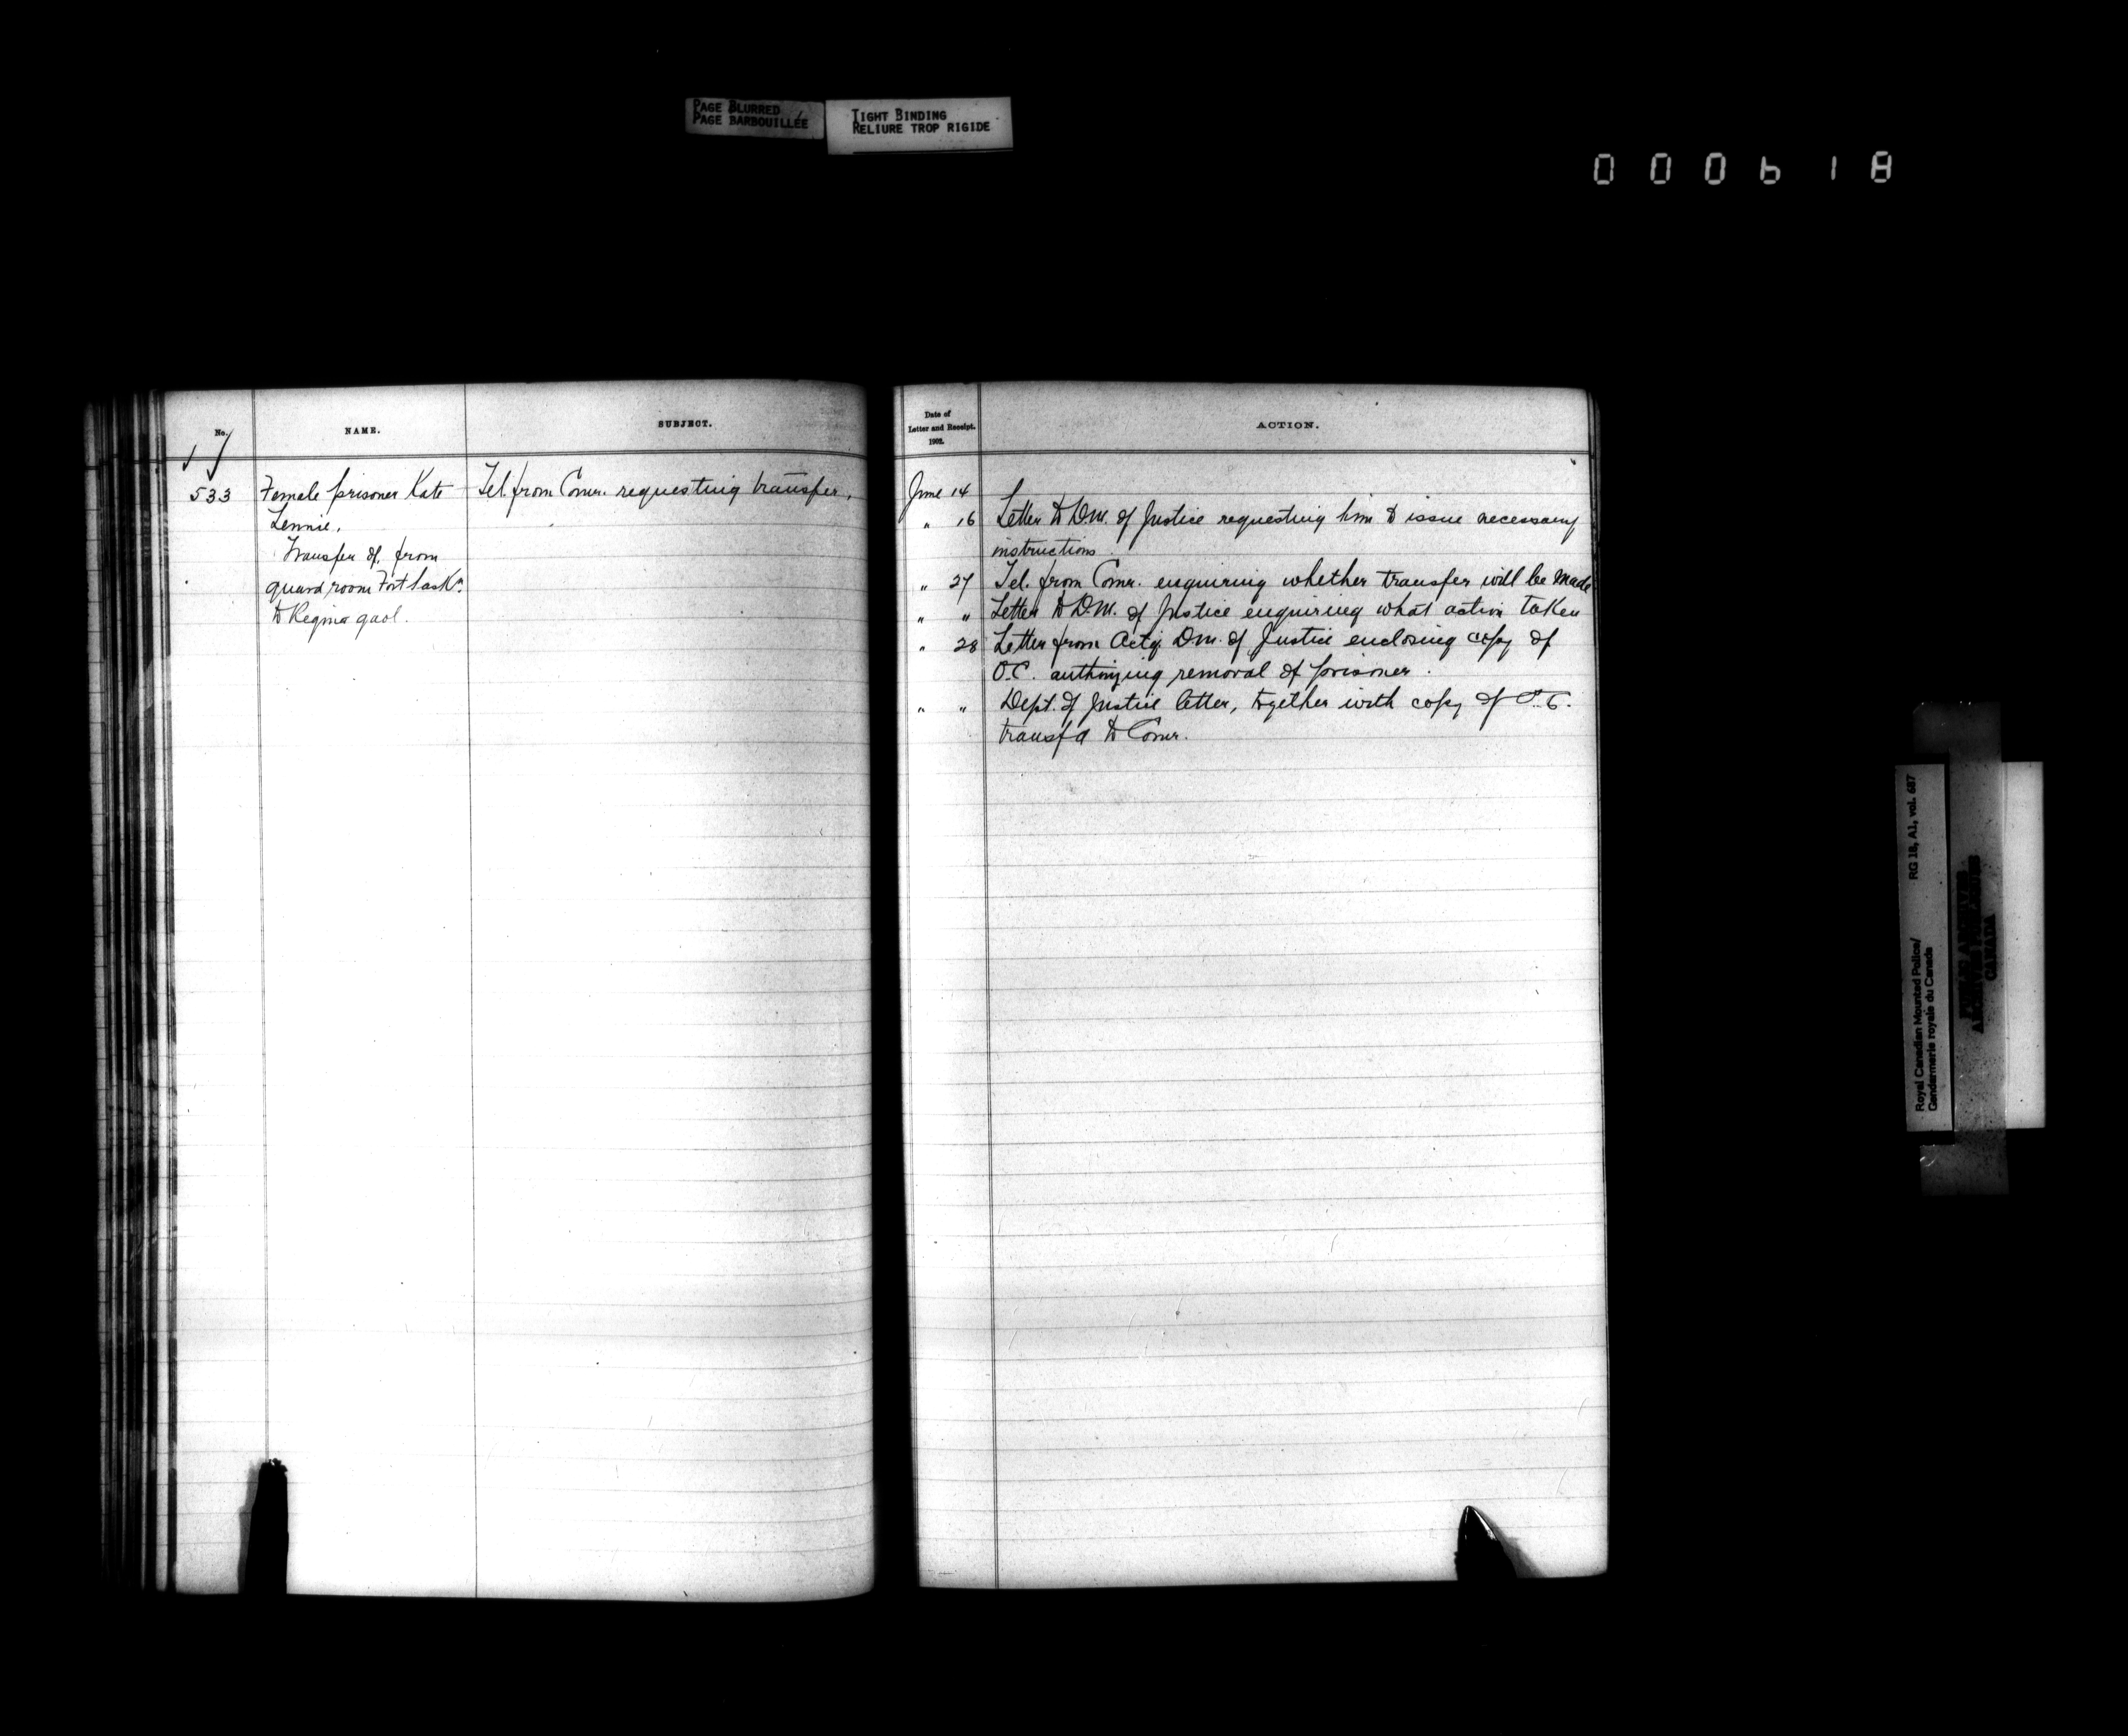 PAGE BLURRED
PAGE BARBOUILLÉE
TIGHT BINDING
RELIURE TROP RIGIDE
000618
No.
NAME.
SUBJECT.
533
Female prisoner Kate
Lennie.
Transfer of, from
guard room Fort Saskn.
to Regina gaol.
Tel. from Comr. requesting transfer.
Date of
Letter and Receipt.
1902.
ACTION.
June 14
" 16 Letter to D.M. of Justice requesting him to issue necessary
instructions.
" 27 Tel. from Comr. enquiring whether transfer will be made
" " Letter to D.M. of Justice enquiring what action taken
" 28 Letter from Actg. D.M. of Justice enclosing copy of
O.C. authorizing removal of prisoner.
" " Dept. of Justice letter, together with copy of O.C.
transfd to Comr.
Royal Canadian Mounted Police/
Gendarmerie royale du Canada
RG 18, A1, vol. 687
PUBLIC ARCHIVES
ARCHIVES PUBLIQUES
CANADA